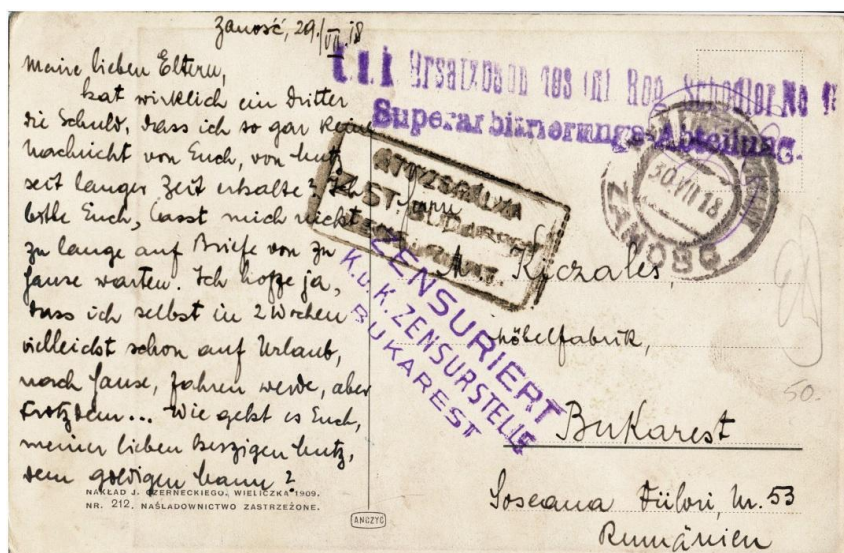 Zamość, 29./VII.18
Meine lieben Eltern,
hat wirklich ein Dritter
die Schuld, dass ich so gar keine
Nachricht von Euch, von
seit langer Zeit erhalte? Ich
bitte Euch, lasst mich nicht
zu lange auf Briefe von zu
Hause warten. Ich hoffe ja,
dass ich selbst in 2 Wochen
vielleicht schon auf Urlaub,
nach Hause, fahren werde, aber
trotzdem... Wie geht es Euch,
meiner lieben herzigen
dem goldigen
NAKŁAD J. CZERNECKIEGO, WIELICZKA 1909.
NR. 212. NAŚLADOWNICTWO ZASTRZEŻONE.
ANCZYC
k.u.k. Ersatzbaon des Inf. Reg.
Superarbitrierungs-Abteilung.
30.VII 18
ZAMOŚĆ
ZENSURIERT
K.u.K. ZENSURSTELLE
BUKAREST
Herrn
Kiczales,
Möbelfabrik,
Bukarest
Soseaua 53
Rumänien
50.